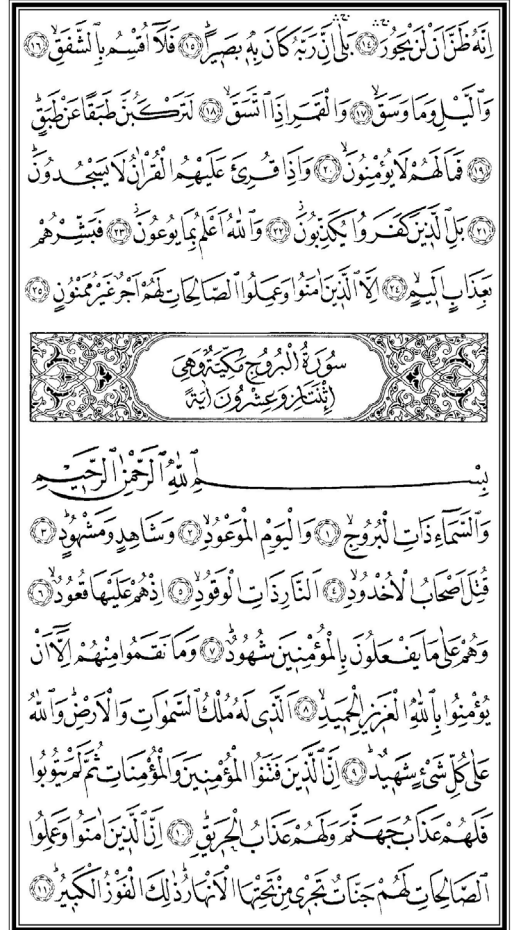 اِنَّهُ ظَنَّ اَنْ لَنْ يَحُورَۚ ﴿١٤﴾ بَلٰىۚ اِنَّ رَبَّهُ كَانَ بِهٖ بَصٖيراًؕ ﴿١٥﴾ فَلَٓا اُقْسِمُ بِالشَّفَقِۙ ﴿١٦﴾
وَالَّيْلِ وَمَا وَسَقَۙ ﴿١٧﴾ وَالْقَمَرِ اِذَا اتَّسَقَۙ ﴿١٨﴾ لَتَرْكَبُنَّ طَبَقًا عَنْ طَبَقٍؕ
﴿١٩﴾ فَمَا لَهُمْ لَا يُؤْمِنُونَۙ ﴿٢٠﴾ وَاِذَا قُرِئَ عَلَيْهِمُ الْقُرْاٰنُ لَا يَسْجُدُونَؕ
﴿٢١﴾ بَلِ الَّذٖينَ كَفَرُوا يُكَذِّبُونَۘ ﴿٢٢﴾ وَاللّٰهُ اَعْلَمُ بِمَا يُوعُونَۘ ﴿٢٣﴾ فَبَشِّرْهُمْ
بِعَذَابٍ اَلٖيمٍۙ ﴿٢٤﴾ اِلَّا الَّذٖينَ اٰمَنُوا وَعَمِلُوا الصَّالِحَاتِ لَهُمْ اَجْرٌ غَيْرُ مَمْنُونٍ ﴿٢٥﴾
سُورَةُ الْبُرُوجِ مَكِّيَّةٌ وَهِيَ
اِثْنَتَانِ وَعِشْرُونَ اٰيَةً
بِسْمِ اللّٰهِ الرَّحْمٰنِ الرَّحٖيمِ
وَالسَّمَٓاءِ ذَاتِ الْبُرُوجِۙ ﴿١﴾ وَالْيَوْمِ الْمَوْعُودِۙ ﴿٢﴾ وَشَاهِدٍ وَمَشْهُودٍؕ ﴿٣﴾
قُتِلَ اَصْحَابُ الْاُخْدُودِۙ ﴿٤﴾ اَلنَّارِ ذَاتِ الْوَقُودِۙ ﴿٥﴾ اِذْ هُمْ عَلَيْهَا قُعُودٌۙ ﴿٦﴾
وَهُمْ عَلٰى مَا يَفْعَلُونَ بِالْمُؤْمِنٖينَ شُهُودٌؕ ﴿٧﴾ وَمَا نَقَمُوا مِنْهُمْ اِلَّٓا اَنْ
يُؤْمِنُوا بِاللّٰهِ الْعَزٖيزِ الْحَمٖيدِۙ ﴿٨﴾ اَلَّذٖي لَهُ مُلْكُ السَّمٰوَاتِ وَالْاَرْضِؕ وَاللّٰهُ
عَلٰى كُلِّ شَيْءٍ شَهٖيدٌؕ ﴿٩﴾ اِنَّ الَّذٖينَ فَتَنُوا الْمُؤْمِنٖينَ وَالْمُؤْمِنَاتِ ثُمَّ لَمْ يَتُوبُوا
فَلَهُمْ عَذَابُ جَهَنَّمَ وَلَهُمْ عَذَابُ الْحَرٖيقِؕ ﴿١٠﴾ اِنَّ الَّذٖينَ اٰمَنُوا وَعَمِلُوا
الصَّالِحَاتِ لَهُمْ جَنَّاتٌ تَجْرٖي مِنْ تَحْتِهَا الْاَنْهَارُؕ ذٰلِكَ الْفَوْزُ الْكَبٖيرُؕ ﴿١١﴾